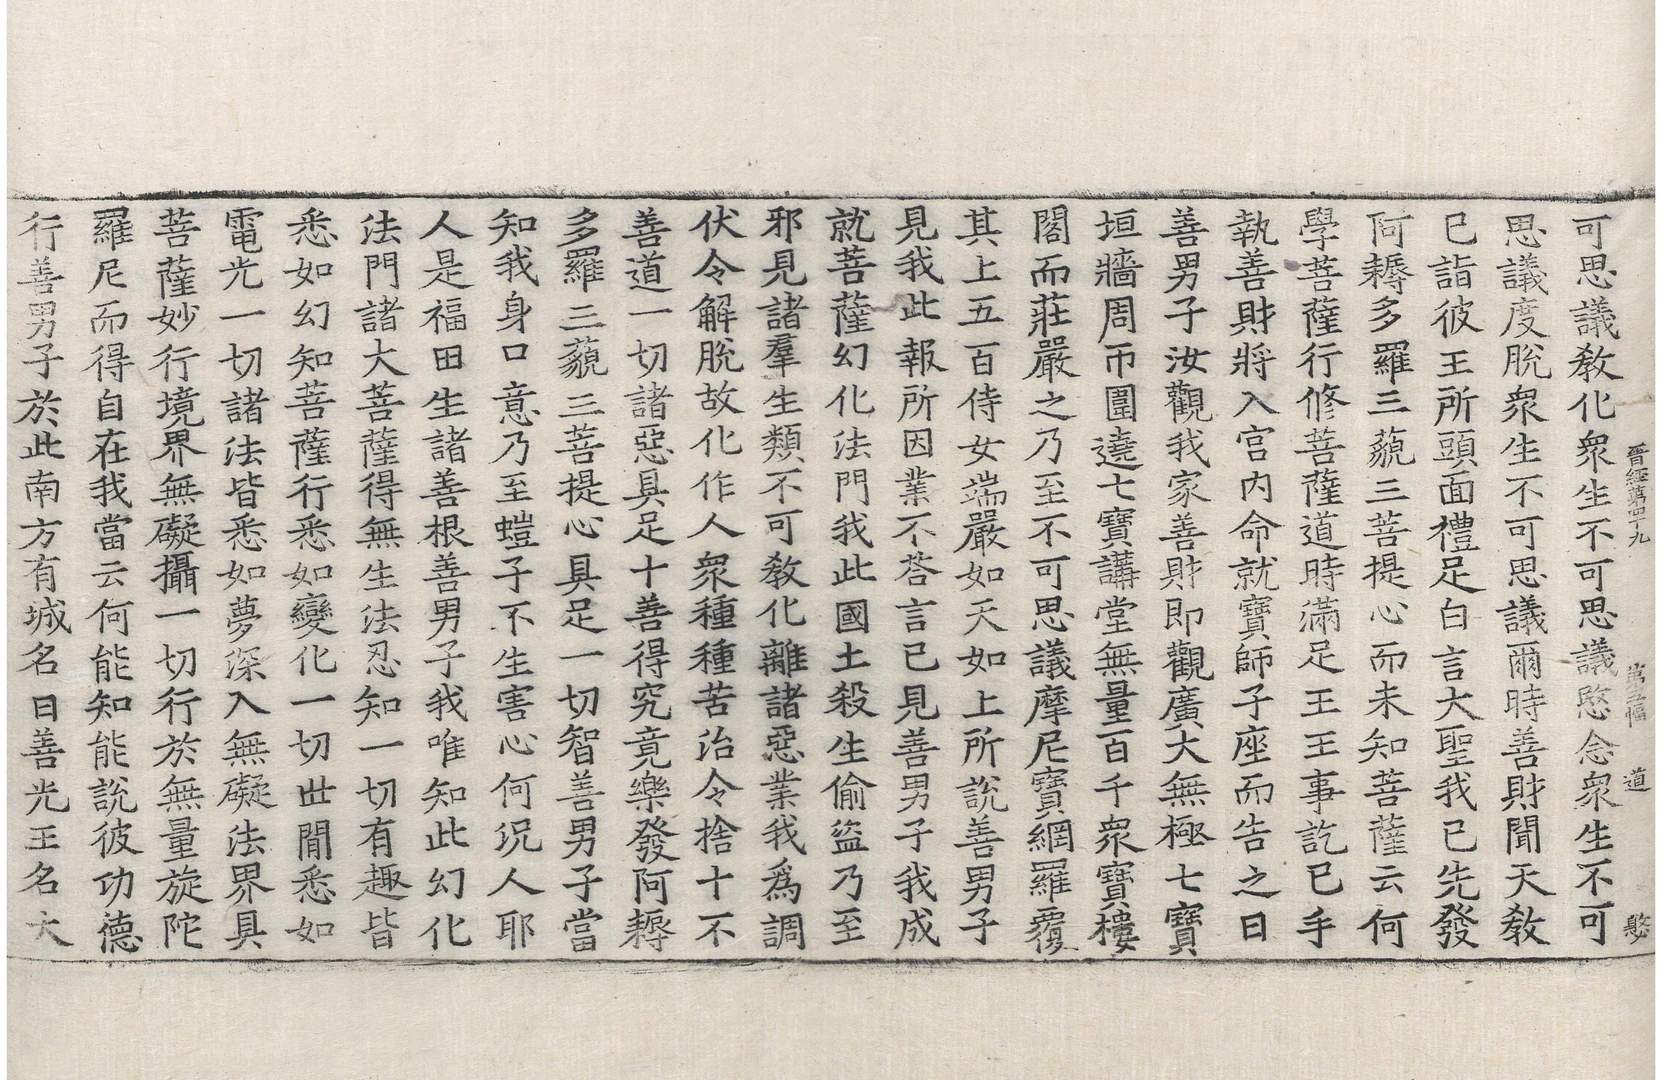 晉經第四十九 第五幅 道 愍
可思議教化衆生不可思議愍念衆生不可
思議度脫衆生不可思議爾時善財聞天教
已詣彼王所頭面禮足白言大聖我已先發
阿耨多羅三藐三菩提心而未知菩薩云何
學菩薩行修菩薩道時滿足王王事訖已手
執善財將入宮內命就寶師子座而告之曰
善男子汝觀我家善財即觀廣大無極七寶
垣牆周帀圍遶七寶講堂無量百千衆寶樓
閣而莊嚴之乃至不可思議摩尼寶網羅覆
其上五百侍女端嚴如天如上所說善男子
見我此報所因業不荅言已見善男子我成
就菩薩幻化法門我此國土殺生偷盜乃至
邪見諸羣生類不可教化離諸惡業我爲調
伏令解脫故化作人衆種種苦治令捨十不
善道一切諸惡具足十善得究竟樂發阿耨
多羅三藐三菩提心具足一切智善男子當
知我身口意乃至螘子不生害心何況人耶
人是福田生諸善根善男子我唯知此幻化
法門諸大菩薩得無生法忍知一切有趣皆
悉如幻知菩薩行悉如變化一切世間悉如
電光一切諸法皆悉如夢深入無礙法界具
菩薩妙行境界無礙攝一切行於無量旋陀
羅尼而得自在我當云何能知能說彼功德
行善男子於此南方有城名曰善光王名大